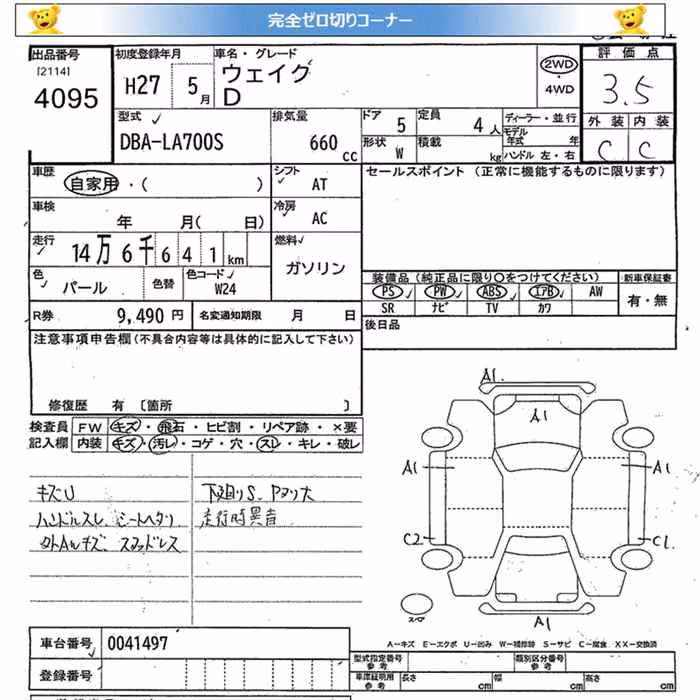 完全ゼロ切りコーナー
出品番号
[2114]
4095
初度登録年月
H27 5月
車名・グレード
ウェイク
D
2WD
・
4WD
評価点
3.5
外装 内装
C C
型式
DBA-LA700S
排気量
660 cc
ドア 5
定員 4人
形状 W
積載 kg
ディーラー・並行
モデル年式 年
ハンドル 左・右
車歴
自家用・( )
シフト
AT
車検
年 月( 日)
冷房
AC
走行
14万6千641km
燃料
ガソリン
色
パール
色替
色コード
W24
R券 9,490円
名変通知期限 月 日
セールスポイント(正常に機能するものに限ります)
装備品(純正品に限り○をつけてください)
PS PW ABS エアB AW
SR ナビ TV カワ
新車保証書
有・無
後日品
注意事項申告欄(不具合内容等は具体的に記入して下さい)
修復歴 有 〔箇所 〕
検査員記入欄
FW キズ・飛石・ヒビ割・リペア跡・×要
内装 キズ・汚レ・コゲ・穴・スレ・キレ・破レ
キズU
ハンドルスレ、シートヘタリ
下廻りS、Pヌリ大
走行時異音
A1.
A1
A1 A1
C2 C1
A1
スペア
A-キズ E-エクボ U-凹み W-補修跡 S-サビ C-腐食 XX-交換済
車台番号 0041497
登録番号
型式指定番号 参考
類別区分番号 参考
車庫証明用 参考
長さ cm 幅 cm 高さ cm